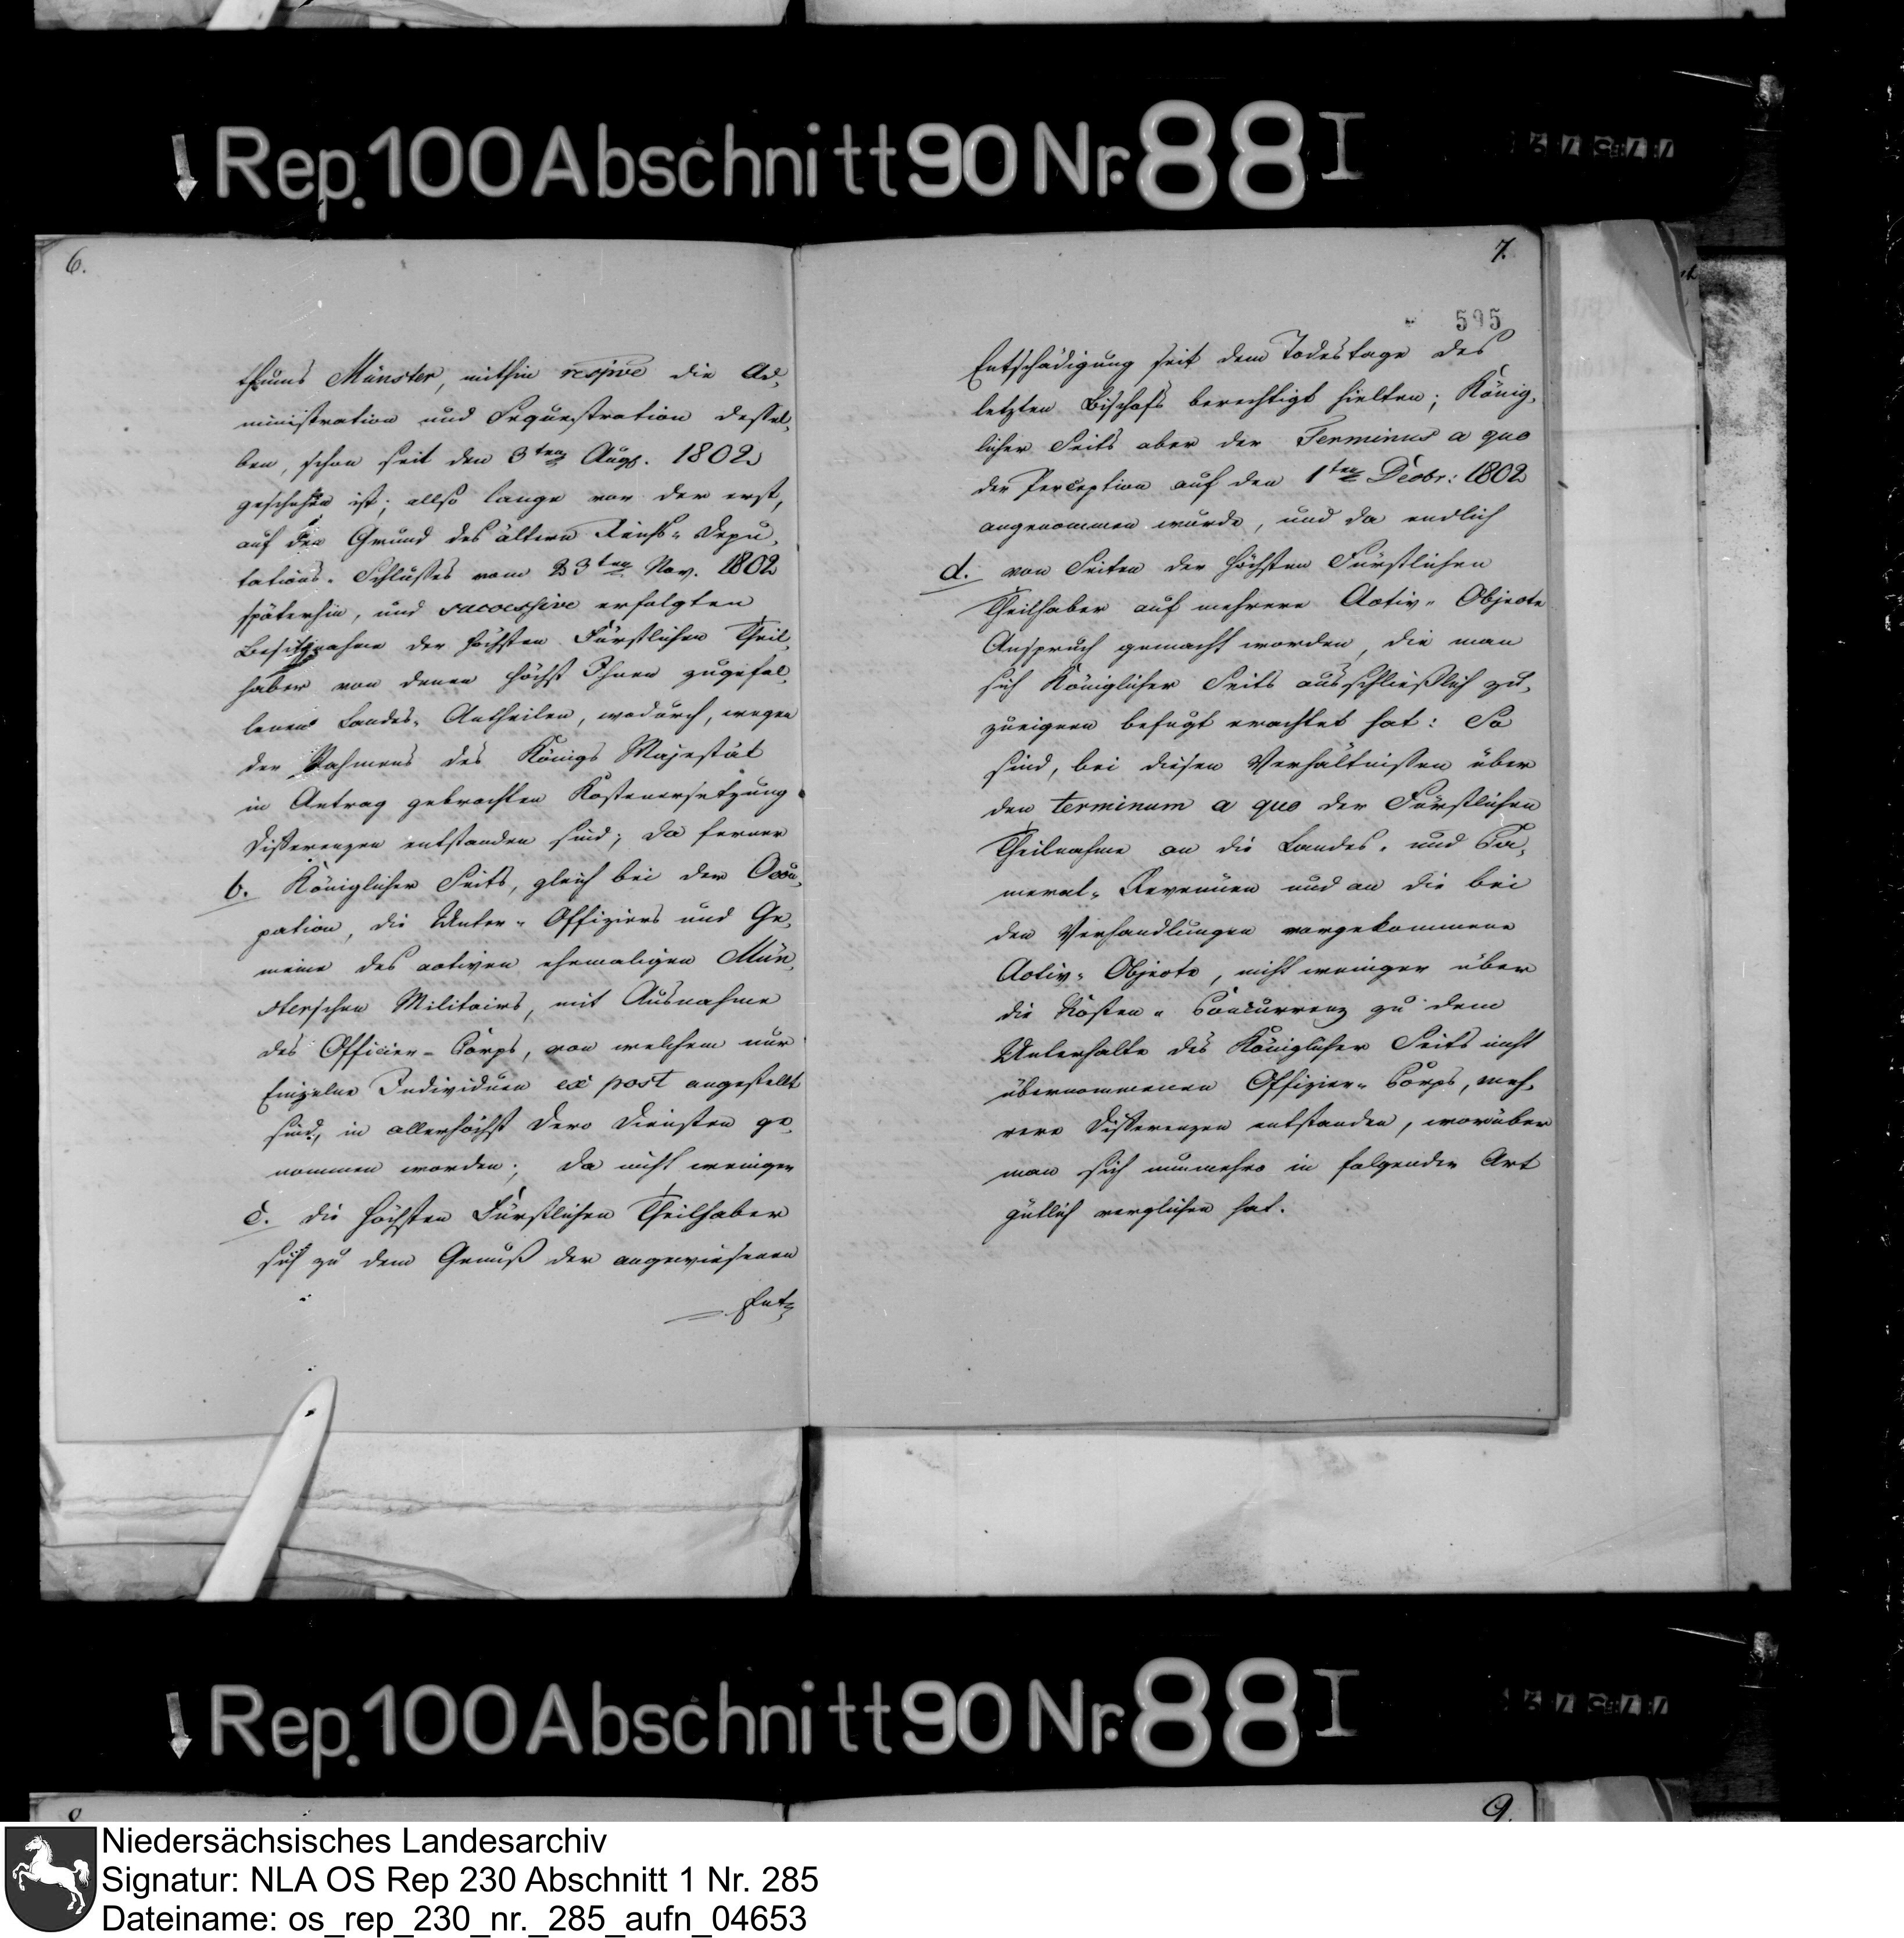 Rep. 100 Abschnitt 90 Nr. 88 I
6.
thums Münster, mithin respive die Ad-
ministration und Sequestration dessel-
ben, schon seit den 3ten Aug. 1802
geschehen ist; allso lange vor der erst,
auf den Grund des ältern Reichs-Depu-
tations-Schlusses vom 23ten Nov. 1802
späterhin, und successive erfolgten
Besitznahme der höchsten Fürstlichen Theil-
haber von denen Höchst Ihnen zugefal-
lenen Landes-Antheilen, wodurch, wegen
der Nahmens des Königs Majestät
in Antrag gebrachten Kostenersetzung
Differenzen entstanden sind; da ferner
b. Königlicher Seits, gleich bei der Occu-
pation, die Unter-Offiziers und Ge-
meine des activen ehemaligen Mün-
sterschen Militairs, mit Ausnahme
des Officier-Corps, von welchem nur
Einzelne Individuen ex post angestellt
sind, in allerhöchst Dero Diensten ge-
nommen worden; da nicht weniger
c. die höchsten Fürstlichen Theilhaber
sich zu dem Genuß der angewiesenen
Ent-
7.
595
Entschädigung seit dem Todestage des
letzten Bischofs berechtigt hielten; König-
licher Seits aber der Terminus a quo
der Perception auf den 1ten Decbr: 1802
angenommen wurde, und da endlich
d. von Seiten der höchsten Fürstlichen
Theilhaber auf mehrere Activ-Objecte
Anspruch gemacht worden, die man
sich Königlicher Seits ausschließlich zu-
zueignen befugt erachtet hat: So
sind, bei diesen Verhältnissen über
den terminum a quo der Fürstlichen
Theilnahme an die Landes- und Ca-
meral-Revenüen und an die bei
den Verhandlungen vorgekommene
Activ-Objecte, nicht weniger über
die Kosten-Concurrenz zu dem
Unterhalte des Königlicher Seits nicht
übernommenen Offizier-Corps, meh-
rere Differenzen entstanden, worüber
man sich nunmehro in folgender Art
gütlich verglichen hat.
Rep. 100 Abschnitt 90 Nr. 88 I
8
9.
Niedersächsisches Landesarchiv
Signatur: NLA OS Rep 230 Abschnitt 1 Nr. 285
Dateiname: os_rep_230_nr._285_aufn_04653